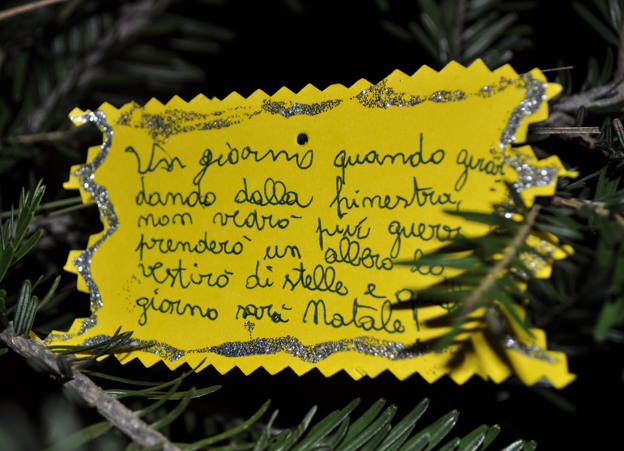 Un giorno quando guar
dando dalla finestra,
non vedrò più guerre
prenderò un albero lo
vestirò di stelle e
giorno sarà Natale!